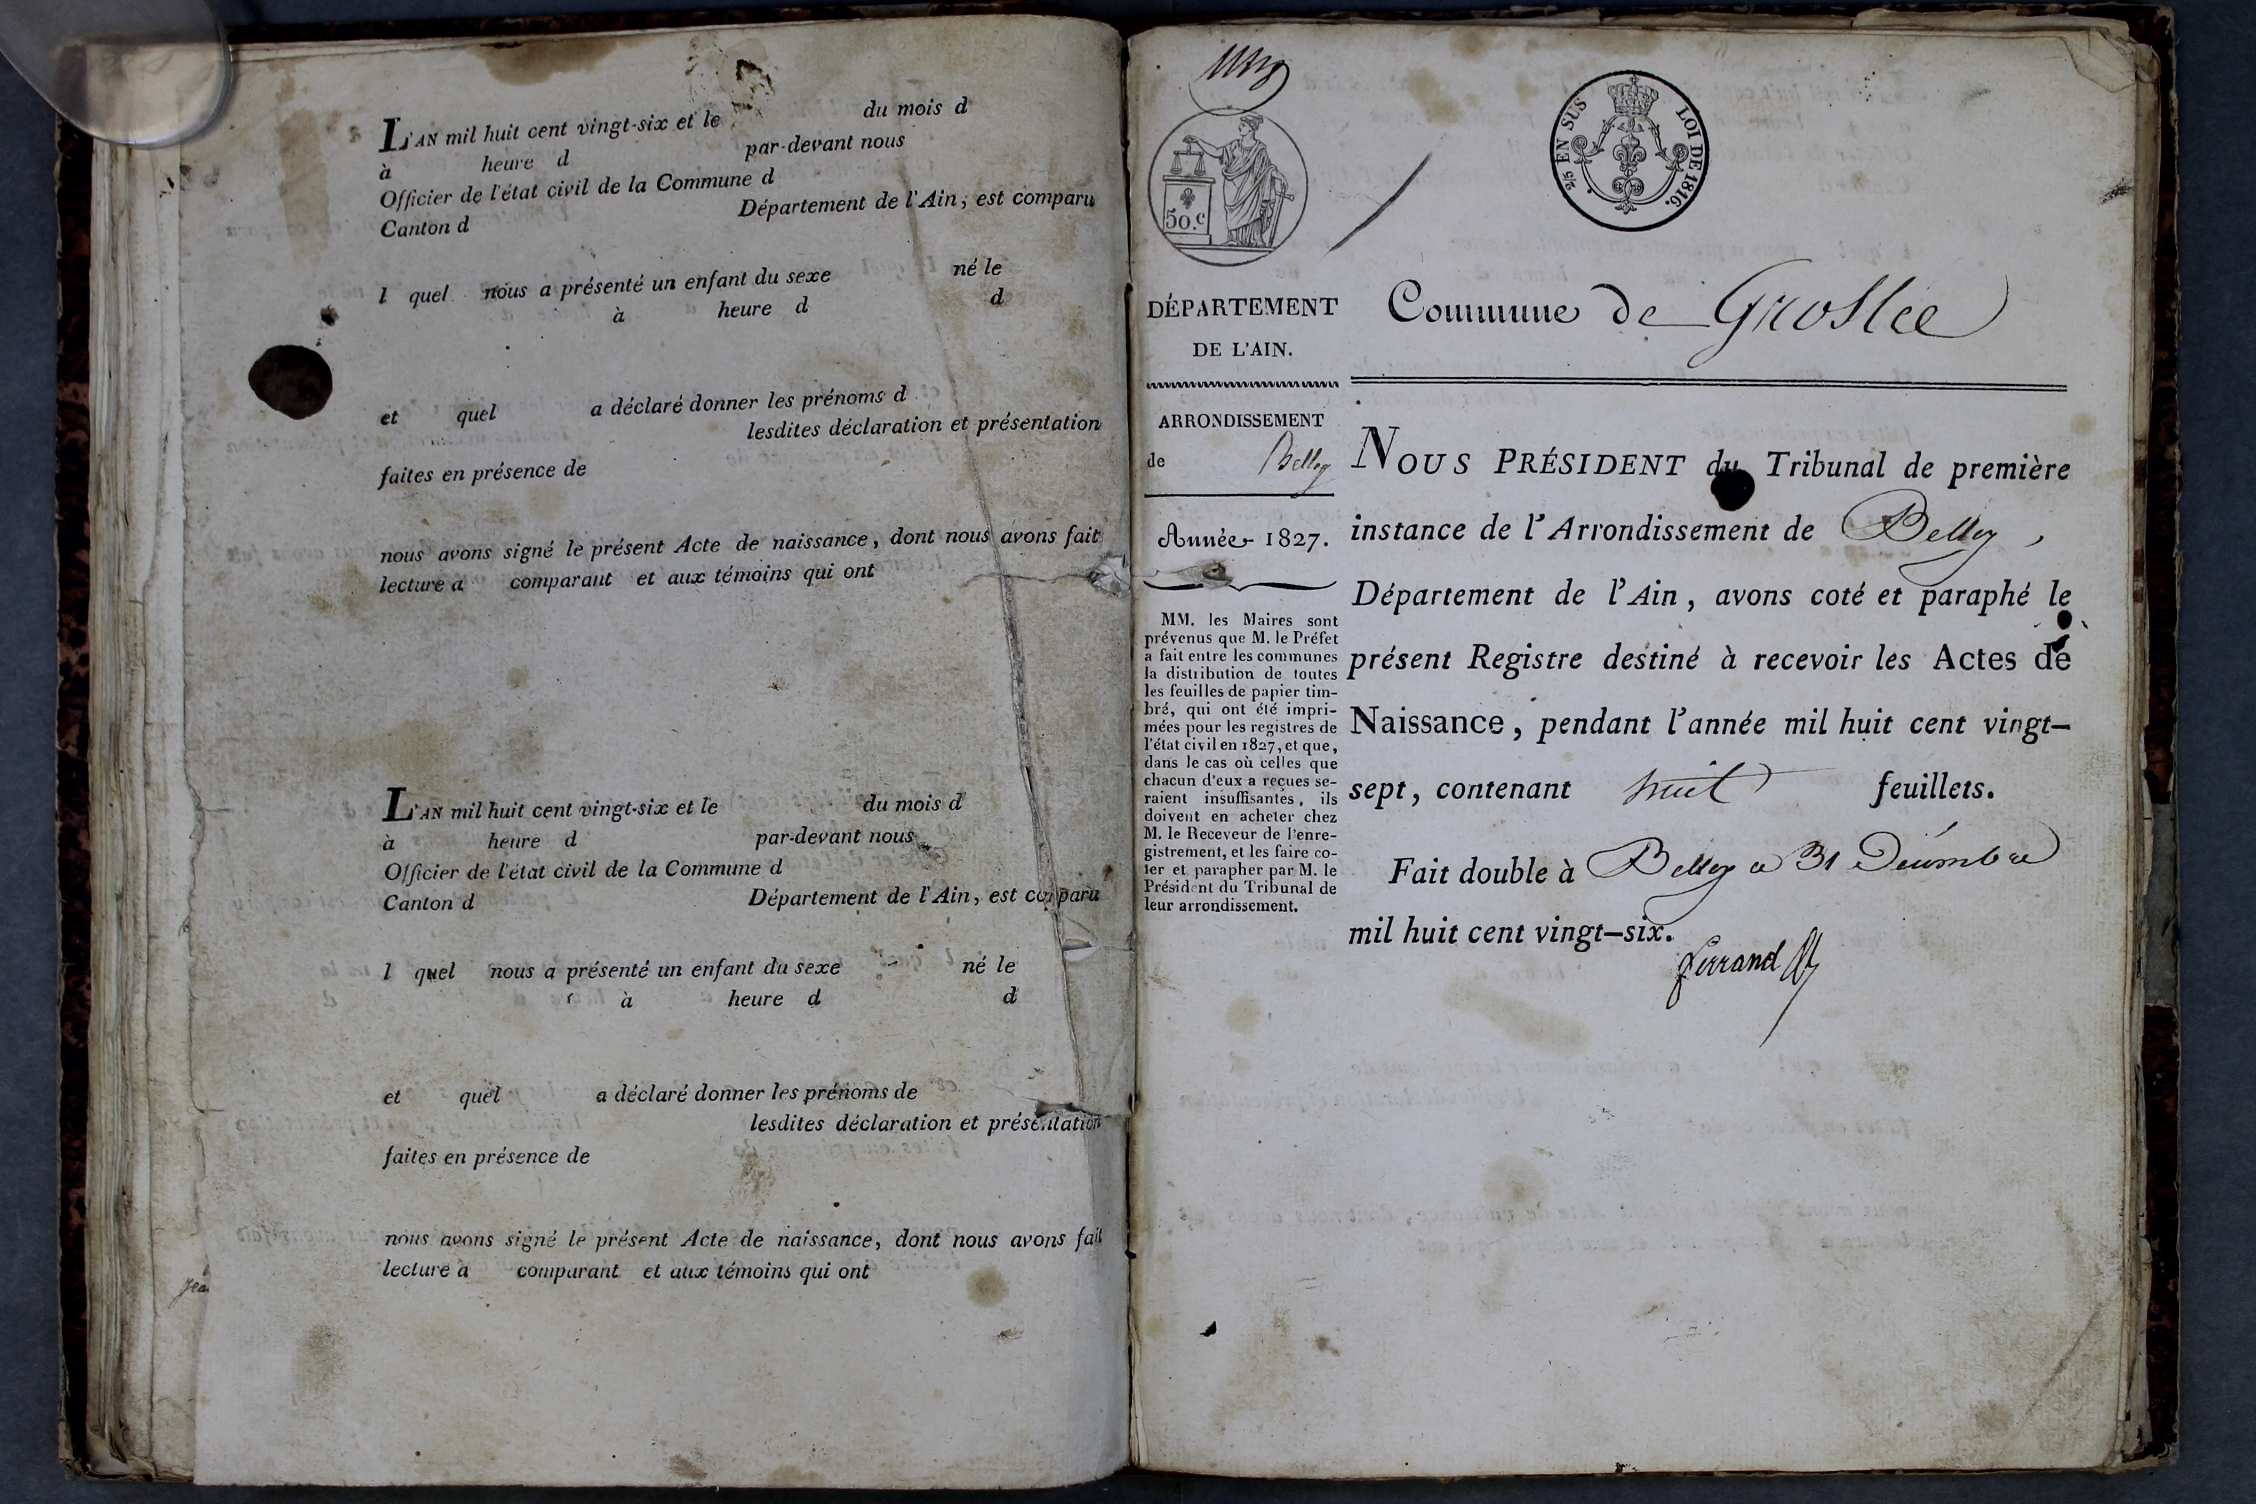 L'AN mil huit cent vingt-six et le du mois d
à heure d par-devant nous
Officier de l'état civil de la Commune d
Canton d Département de l'Ain, est comparu
l quel nous a présenté un enfant du sexe né le
à heure d d
et quel a déclaré donner les prénoms d
lesdites déclaration et présentation
faites en présence de
nous avons signé le présent Acte de naissance, dont nous avons fait
lecture a comparant et aux témoins qui ont
L'AN mil huit cent vingt-six et le du mois d
à heure d par-devant nous
Officier de l'état civil de la Commune d
Canton d Département de l'Ain, est comparu
l quel nous a présenté un enfant du sexe né le
à heure d d
et quel a déclaré donner les prénoms de
lesdites déclaration et présentation
faites en présence de
nous avons signé le présent Acte de naissance, dont nous avons fait
lecture a comparant et aux témoins qui ont
50.c
2/5 EN SUS LOI DE 1816.
DÉPARTEMENT
DE L'AIN.
ARRONDISSEMENT
de Belley
Année 1827.
MM. les Maires sont
prévenus que M. le Préfet
a fait entre les communes
la distribution de toutes
les feuilles de papier tim-
bré, qui ont été impri-
mées pour les registres de
l'état civil en 1827, et que,
dans le cas où celles que
chacun d'eux a reçues se-
raient insuffisantes, ils
doivent en acheter chez
M. le Receveur de l'enre-
gistrement, et les faire co-
ter et parapher par M. le
Président du Tribunal de
leur arrondissement.
Commune de Groslée
NOUS PRÉSIDENT du Tribunal de première
instance de l'Arrondissement de Belley,
Département de l'Ain, avons coté et paraphé le
présent Registre destiné à recevoir les Actes de
Naissance, pendant l'année mil huit cent vingt-
sept, contenant huit feuillets.
Fait double à Belley ce 31 Décembre
mil huit cent vingt-six.
ferrand